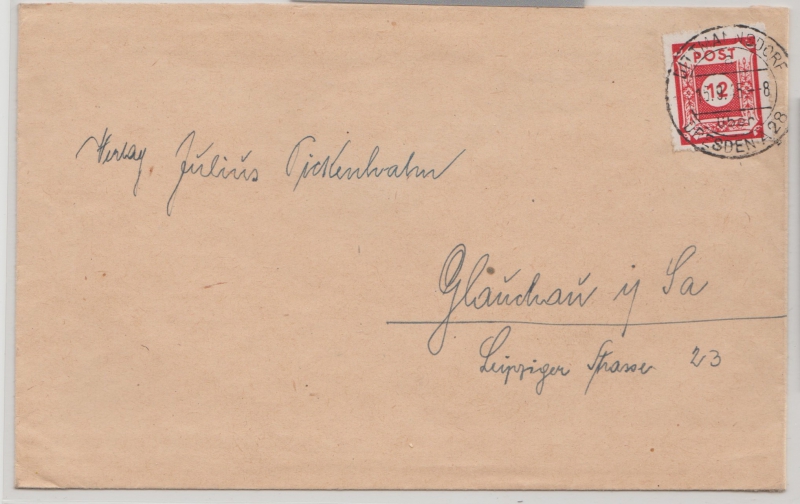 POST
12
DRESDEN A 28
Verlag Julius Pickenhahn
Glauchau i/Sa
Leipziger Strasse 23